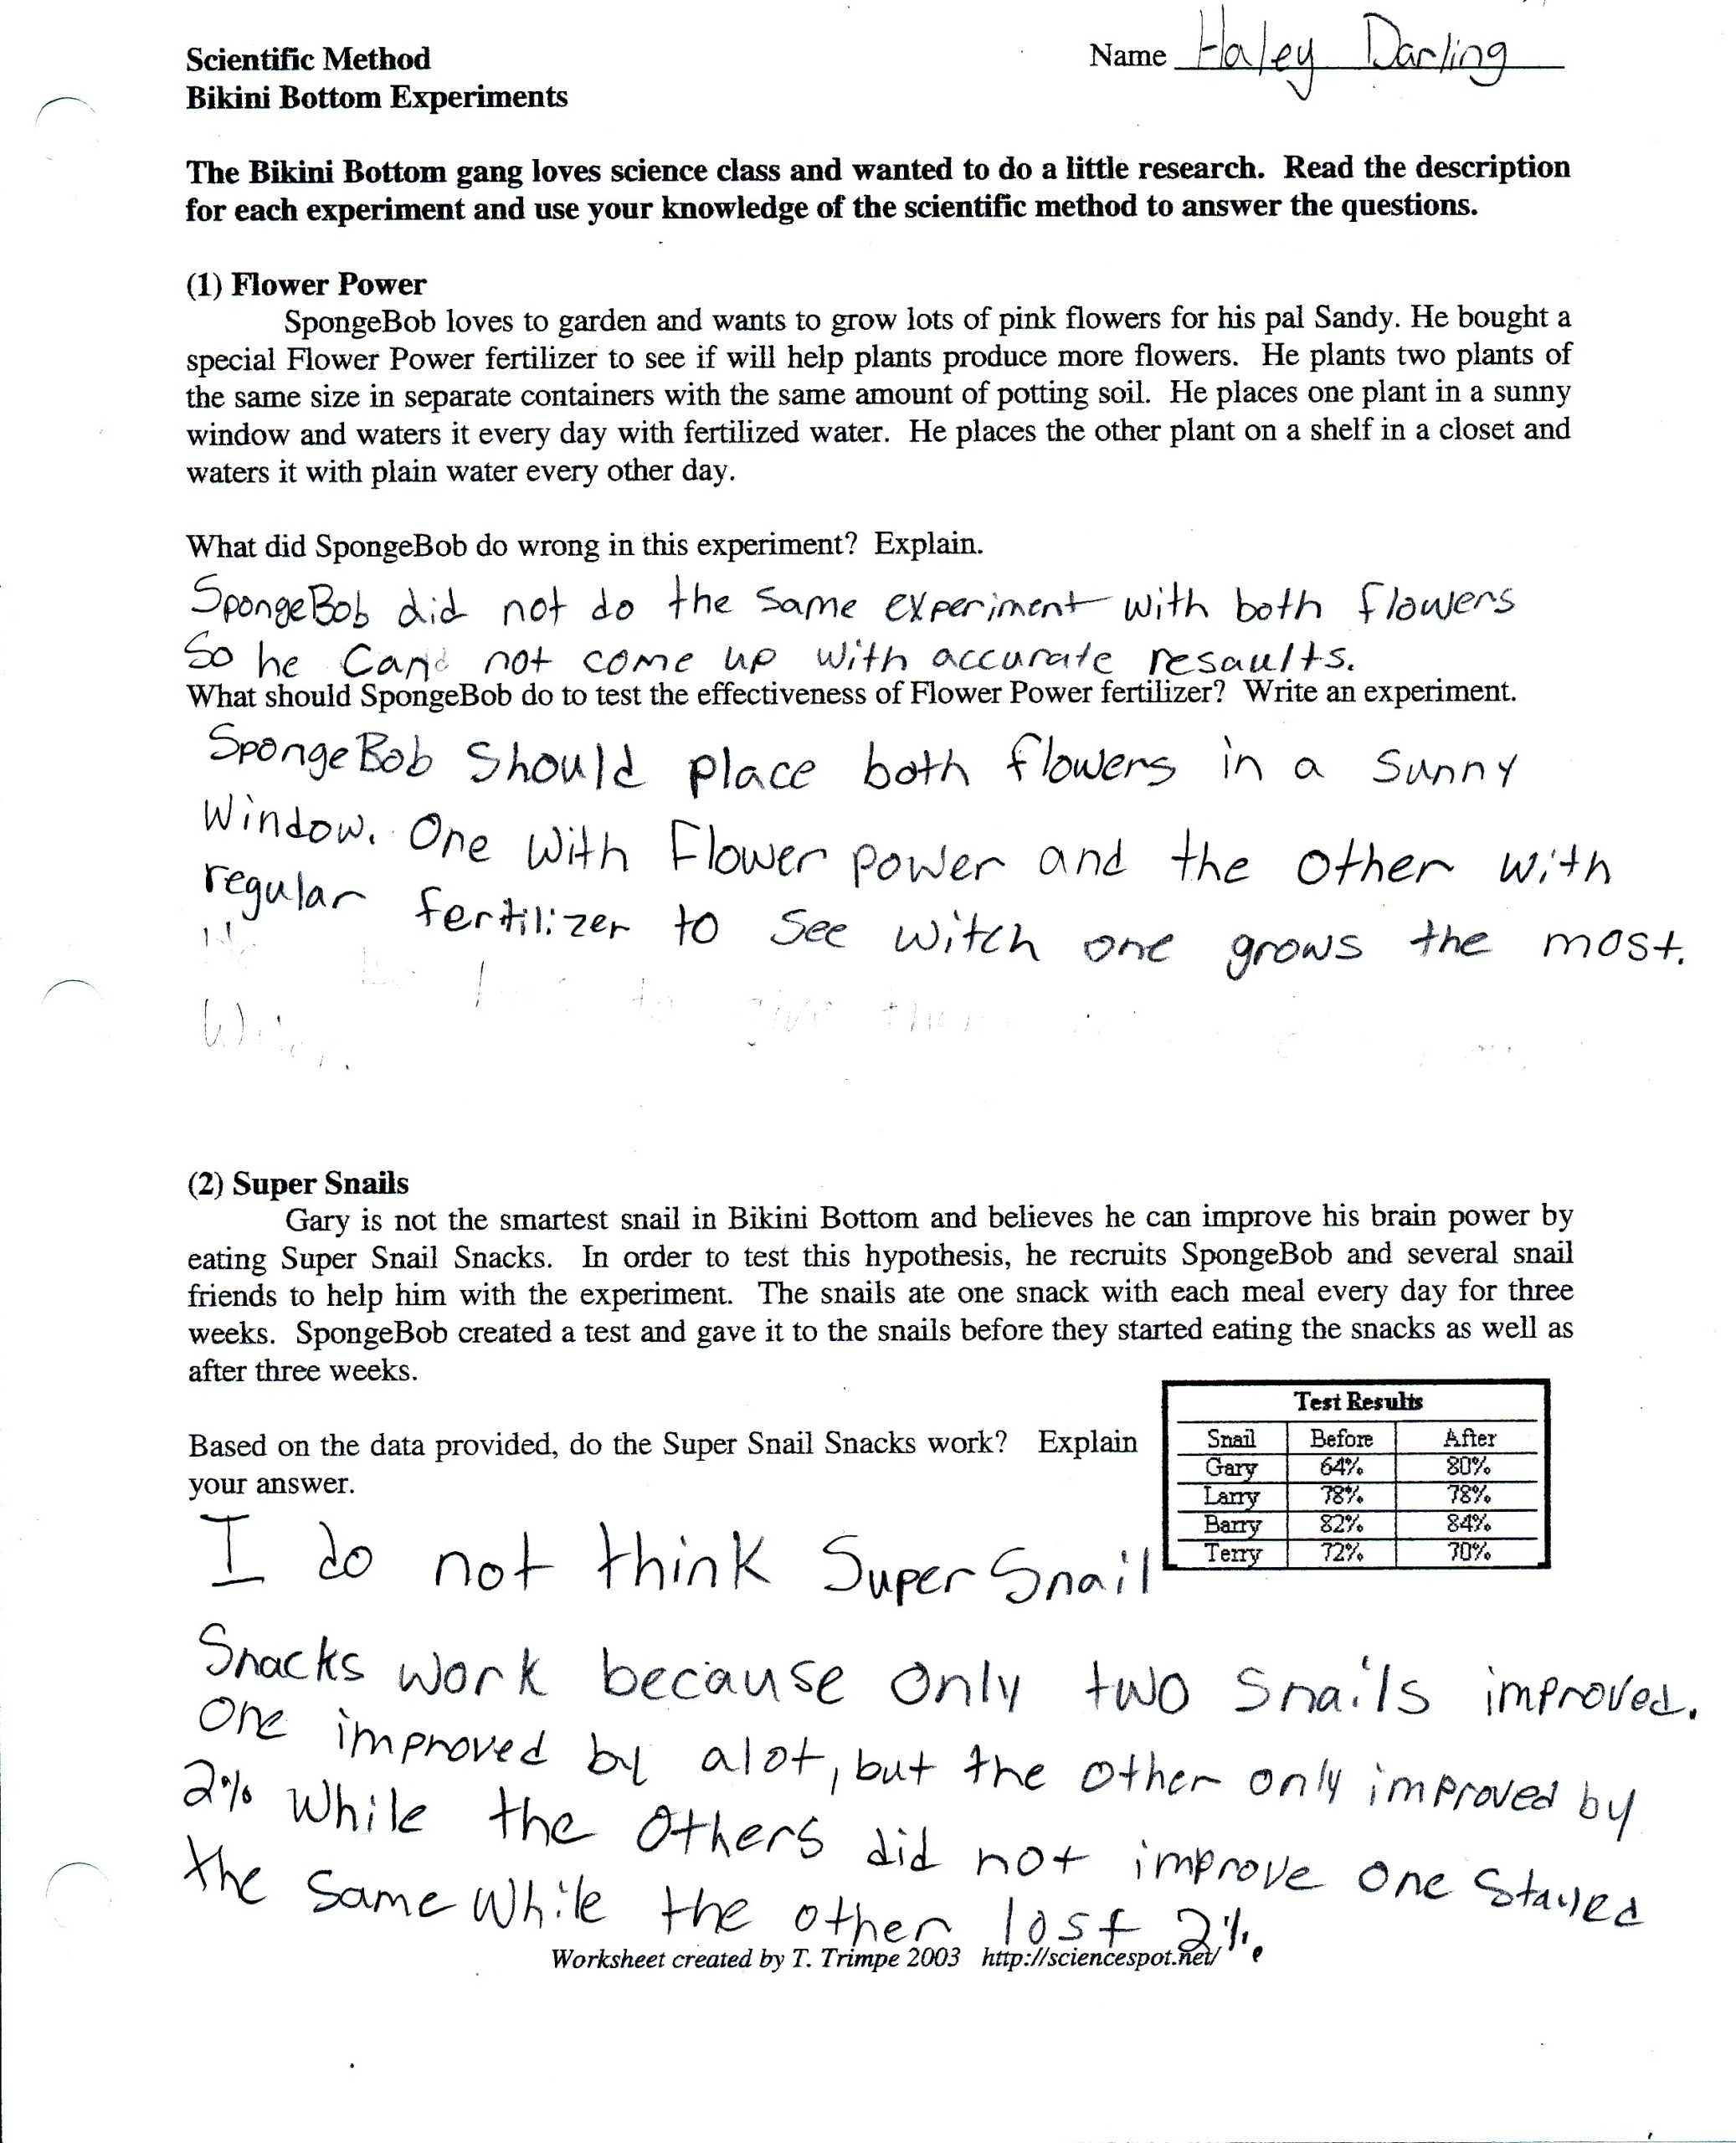 Scientific Method
Name Haley Darling
Bikini Bottom Experiments
The Bikini Bottom gang loves science class and wanted to do a little research. Read the description
for each experiment and use your knowledge of the scientific method to answer the questions.
(1) Flower Power
SpongeBob loves to garden and wants to grow lots of pink flowers for his pal Sandy. He bought a
special Flower Power fertilizer to see if will help plants produce more flowers. He plants two plants of
the same size in separate containers with the same amount of potting soil. He places one plant in a sunny
window and waters it every day with fertilized water. He places the other plant on a shelf in a closet and
waters it with plain water every other day.
What did SpongeBob do wrong in this experiment? Explain.
SpongeBob did not do the same experiment with both flowers
So he can not come up with accurate resaults.
What should SpongeBob do to test the effectiveness of Flower Power fertilizer? Write an experiment.
SpongeBob should place both flowers in a sunny
window. One with Flower power and the other with
regular fertilizer to see witch one grows the most.
(2) Super Snails
Gary is not the smartest snail in Bikini Bottom and believes he can improve his brain power by
eating Super Snail Snacks. In order to test this hypothesis, he recruits SpongeBob and several snail
friends to help him with the experiment. The snails ate one snack with each meal every day for three
weeks. SpongeBob created a test and gave it to the snails before they started eating the snacks as well as
after three weeks.
Based on the data provided, do the Super Snail Snacks work? Explain
your answer.
Test Results
Snail Before After
Gary 64% 80%
Larry 78% 78%
Barry 82% 84%
Terry 72% 70%
I do not think Super Snail
Snacks work because only two snails improved.
One improved by alot, but the other only improved by
2% while the others did not improve one stayed
the same while the other lost 2%.
Worksheet created by T. Trimpe 2003 http://sciencespot.net/